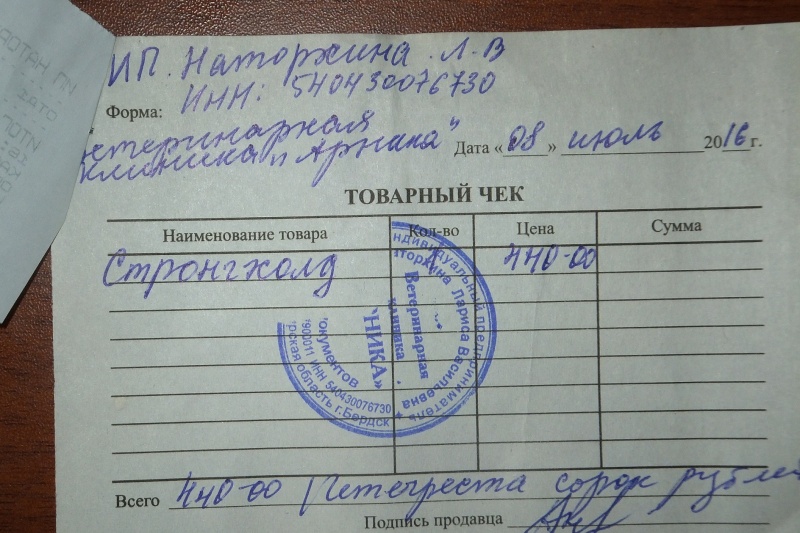 ИП. Наторхина Л.В
Форма: ИНН: 540430076730
етеринарная
клиника "Арника"
Дата «08» июль 2016 г.
ТОВАРНЫЙ ЧЕК
Наименование товара Кол-во Цена Сумма
Стронгхолд 440-00
ндивидуальный предприниматель
аторхина Лариса Васильевна
Ветеринарная
клиника
"НИКА»
окументов
1900011 ИНН 540430076730
рская область г.Бердск
Всего 440-00 Четыреста сорок рублей
Подпись продавца